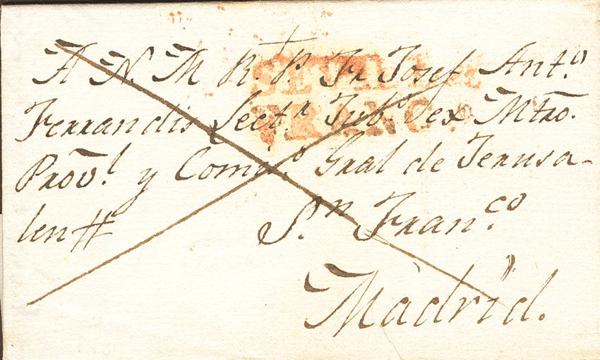 A N. M. R. P. Fr. Josef Ant.º
Ferrandis Lect.r Jub.º Sex Mtro.
Prov.l y Comis.º Gral de Jerusa-
len#
S.n Fran.co
Madrid.
FRANCO